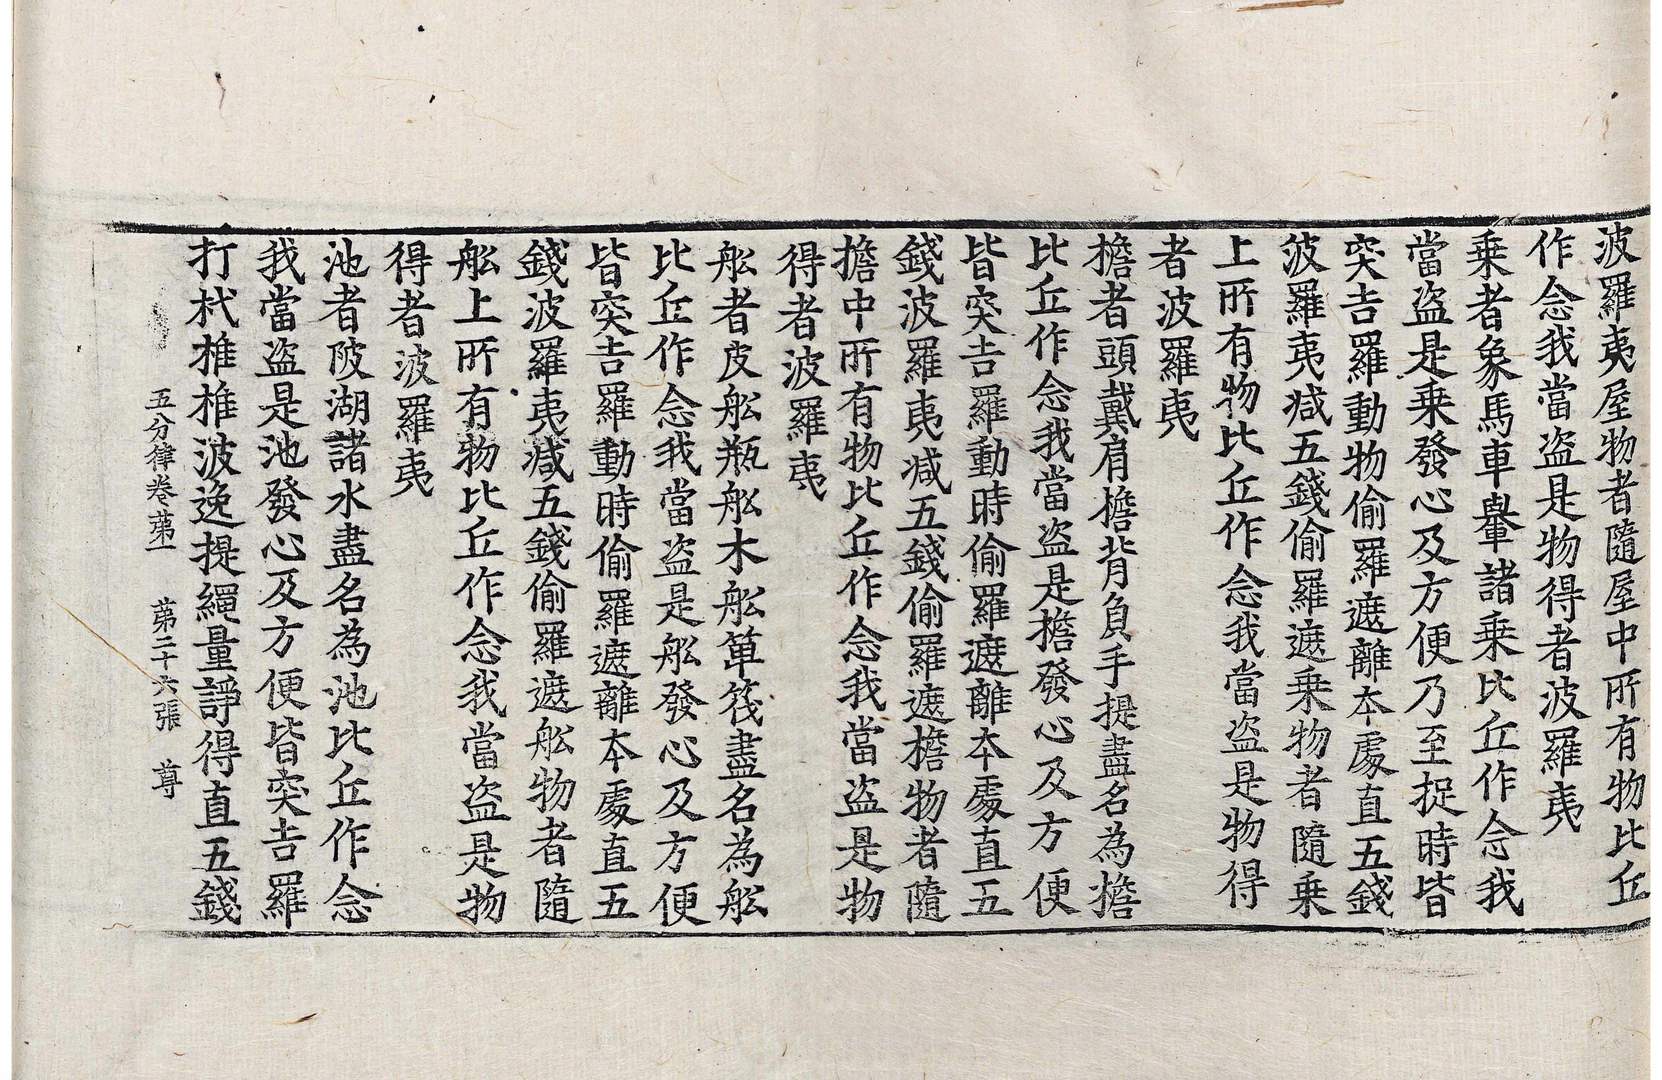 波羅夷屋物者隨屋中所有物比丘
作念我當盜是物得者波羅夷
乗者象馬車轝諸乗比丘作念我
當盜是乗發心及方便乃至捉時皆
突吉羅動物偷羅遮離本處直五錢
波羅夷减五錢偷羅遮乗物者隨乗
上所有物比丘作念我當盜是物得
者波羅夷
擔者頭戴肩擔背負手提盡名為擔
比丘作念我當盜是擔發心及方便
皆突吉羅動時偷羅遮離本處直五
錢波羅夷减五錢偷羅遮擔物者隨
擔中所有物比丘作念我當盜是物
得者波羅夷
舩者皮舩瓶舩木舩箄筏盡名為舩
比丘作念我當盜是舩發心及方便
皆突吉羅動時偷羅遮離本處直五
錢波羅夷减五錢偷羅遮舩物者隨
舩上所有物比丘作念我當盜是物
得者波羅夷
池者陂湖諸水盡名為池比丘作念
我當盜是池發心及方便皆突吉羅
打杙椎椎波逸提繩量諍得直五錢
五分律卷苐一 苐二十六張 尊